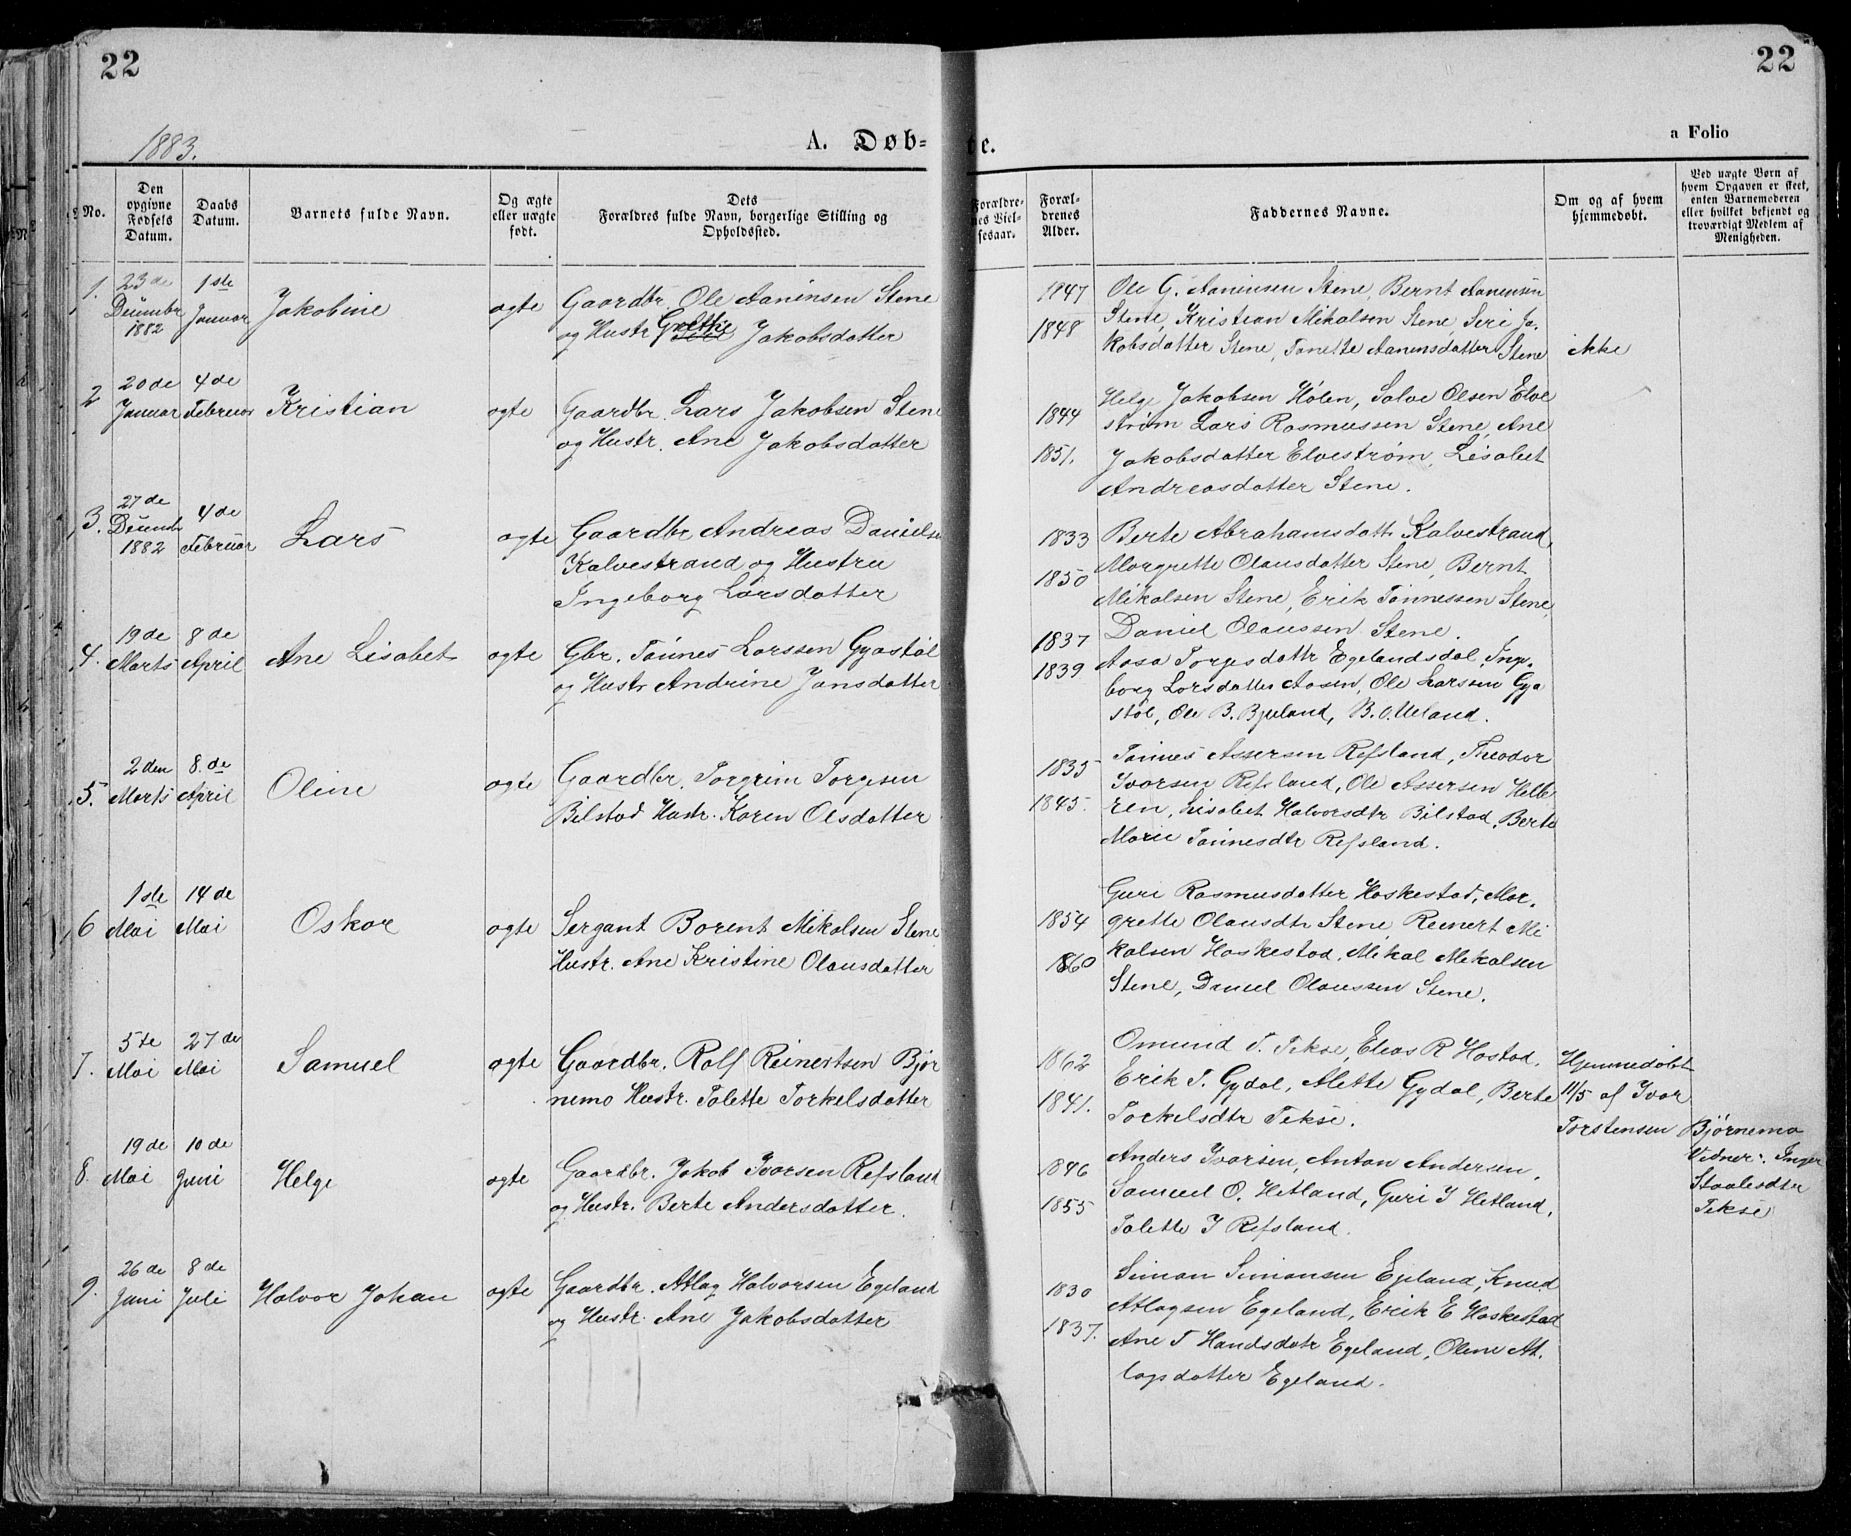 22
22
1883.
A. Døb-
te.
a Folio
No.
Den
opgivne
Fødsels
Datum.
Daabs
Datum.
Barnets fulde Navn.
Og ægte
eller uægte
født.
Dets
Forældres fulde Navn, borgerlige Stilling og
Opholdssted.
Forældre-
nes Viel-
sesaar.
Foræl-
drenes
Alder.
Faddernes Navne.
Om og af hvem
hjemmedøbt.
Ved uægte Børn af
hvem Opgaven er skeet,
enten Barnemoderen
eller hvilket bekjendt og
troværdigt Medlem af
Menigheden.
1.
23de
Decembr
1882
1ste
Januar
Jakobine
ægte
Gaardbr. Ole Aanensen Stene
og Hustr Grethe Jakobsdatter
1847
1848
Ole G. Aanensen Stene, Bernt Aanensen
Stene, Kristian Mikalsen Stene, Seri Ja-
kobsdatter Stene, Tonette Aanensdatter Stene
ikke
2
20de
Januar
4de
Februar
Kristian
ægte
Gaardbr. Lars Jakobsen Stene
og Hustr. Ane Jakobsdatter
1844
1851.
Helge Jakobsen Hølen, Salve Olsen Elve
strøm Lars Rasmussen Stene, Ane
Jakobsdatter Elvestrøm, Lisabet
Andreasdatter Stene.
3.
27de
Decemb
1882
4de
Februar
Lars
ægte
Gaardbr Andreas Daniels
Kalvestrand og Hustru
Ingeborg Larsdatter
1833
1850
Berte Abrahamsdatt Kalvestrand,
Margrette Olausdatter Stene, Bernt
Mikalsen Stene, Erik Tønnessen Stene,
Daniel Olaussen Stene.
4.
19de
Marts
8de
April
Ane Lisabet
ægte
Gbr. Tønnes Larssen Gyastøl
og Hustr Andrine Jansdatter
1837
1839
Aasa Torgesdattr Egelandsdal, Inge-
borg Larsdatter Aasen, Ole Larssen Gya
støl, Ole B. Bjuland, B. O. Ueland.
5.
2den
Marts
8.de
April
Oline
ægte
Gaardbr. Torgrim Torgesen
Bilstad Hustr. Karen Olsdatter
1835
1845.
Tønnes Assersen Refsland, Theodor
Ivarsen Refsland, Ole Assersen Helle-
ren, Lisabet Halvorsdtr Bilstad, Berte
Marie Tønnesdtr Refsland.
6
1ste
Mai
14de
Mai
Oskar
ægte
Sergant Borent Mikalsen Stene
Hustr. Ane Kristine Olausdatter
1854
1860
Guri Rasmusdatter Haskestad, Mar-
grette Olausdtr Stene, Reinert Mi
kalsen Haskestad, Mikal Mikalsen
Stene, Daniel Olaussen Stene.
7.
5te
Mai
27de
Mai
Samuel
ægte
Gaardbr. Rolf Reinertsen Bjør
nemo Hustr. Tolette Torkelsdatter
1862
1841.
Omund T. Tekse, Elias R Hastad,
Erik T. Gydal, Alette Gydal, Berte
Torkelsdtr Tekse.
Hjemmedøbt
11/5 af Ivar
Torstensen
Bjørnemo
Vidner: Inger
Staalesdtr
Tekse
8.
19de
Mai
10de
Juni
Helge
ægte
Gaardbr. Jakob Ivarsen Refsland
og Hustr. Berte Andersdatter.
1846
1855
Anders Ivarsen, Anton Andersen,
Samuel O. Hetland, Guri J Hetland,
Tolette J Refsland.
9.
26de
Juni
8de
Juli
Halvor Johan
ægte
Gaardbr. Atlag Halvorsen Egeland
og Hustr. Ane Jakobsdatter
1830
1837.
Simon Simonsen Egeland, Knud
Atlagsen Egeland, Erik E Haskestad
Ane T Handsdatr Egeland, Oline At-
lagsdatter Egeland.